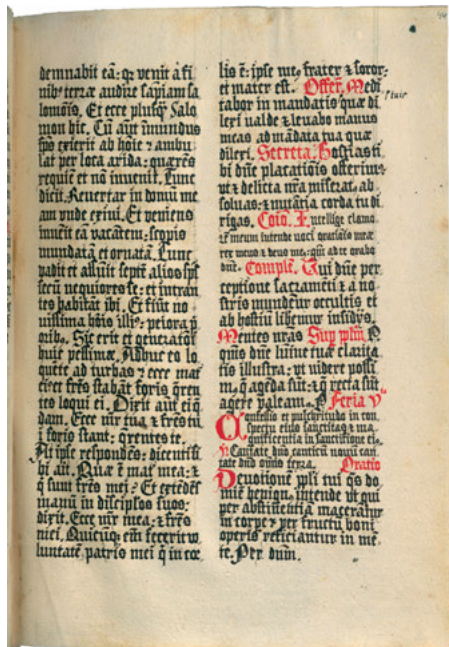 demnabit eã: qꝛ venit a fi
nibꝰ terræ audire sapiam sa
lomõis. Et ecce plusq̃ Salo
mon hic. Cũ aũt ĩmundus
sp̃s exierit ab hoĩe ⁊ ambu
lat per loca arida: quærẽs
requiẽ et nõ invenit. Tunc
dicit. Revertar in domũ me
am unde exivi. Et veniens
invẽit eã vacãtem: scopis
mundatã et ornatã. Tunc
vadit et assũit septẽ alios sp̃s
secũ nequiores se: et intran
tes habitãt ibi. Et fiũt no
vissima hoĩs illiꝰ: peiora p̃
oribꝰ. Sic erit et generati
huic pessimæ. Adhuc eo lo
quẽte ad turbas: ecce mat
eiꝰ et frẽs stabãt foris q̃ren
tes loqui ei. Dixit aũt ei q̃
dam. Ecce mr̃ tua ⁊ frẽs tui
foris stant: q̃rentes te.
At ipse respondẽs: dicenti si
bi ait. Quæ ẽ mat̃ mea: ⁊
q̃ sunt frẽs mei? Et extẽdẽs
manũ in discipulos suos:
dixit. Ecce mr̃ mea: ⁊ frẽs
mei. Quicũq̃ eñi fecerit vo
luntatẽ patris mei q̃ in cœ
lis ẽ: ipse meꝰ frater ⁊ soror:
et mater est. Offeř. Medi
tabor in mandatis quæ di
lexi valde ⁊ levabo manus
meas ad mãdata tua quæ
dilexi. Secreta. Hostias ti
bi dñe placatiõis offerimꝰ
ut ⁊ delicta nr̃a miseratꝰ ab
solvas: ⁊ nutãtia corda tu di
rigas. Cõio. Intellige clamo
rẽ meum intende voci orationis meæ
rex meus ⁊ deus meꝰ: qm̃ ad te orabo
dñe. Complẽ. Qui dñe per
ceptione sacramẽti ⁊ a no
stris mundemur occultis et
ab hostiũ liberemur insidijs.
Mentes nr̃as Sup pl̃m P.
q̃mꝰ dñe lumĩe tuæ clarita
tis illustra: ut videre possi
mꝰ q̃ agẽda sũt: ⁊ q̃ recta sũt
agere valeam. P. Feria V
Confessio et pulchritudo in con
spectu eius sanctitas ⁊ ma
gnificentia in sanctificatione eiꝰ.
V Cantate dñõ canticũ novũ can
tate dñõ omnis terra. Oratio
Devotionẽ ppl̃i tui q̃s do
mĩe benignꝰ intende: ut qui
per abstinentiã macerant̃
in corpe ⁊ per fructũ boni
operis reficiantur in mẽ
te. Per dñm.